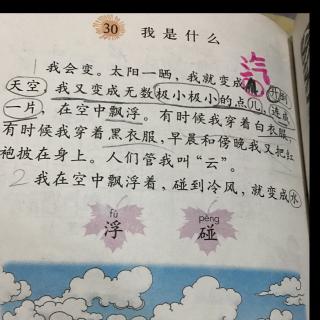 30 我是什么
汽
我会变。太阳一晒，我就变成
天空，我又变成无数极小极小的点儿，连成
一片，在空中飘浮。有时候我穿着白衣服，
有时候我穿着黑衣服，早晨和傍晚我又把红
袍披在身上。人们管我叫“云”。
2 我在空中飘浮着，碰到冷风，就变成水
fú pèng
浮 碰